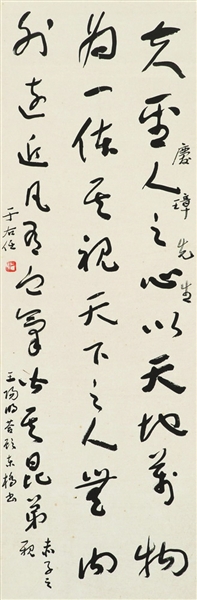 夫聖人之心以天地萬物
慶璋先生
為一体其視天下之人無內
外遠近凡有血氣皆其昆弟赤子之親
王陽明答顧東橋書
于右任